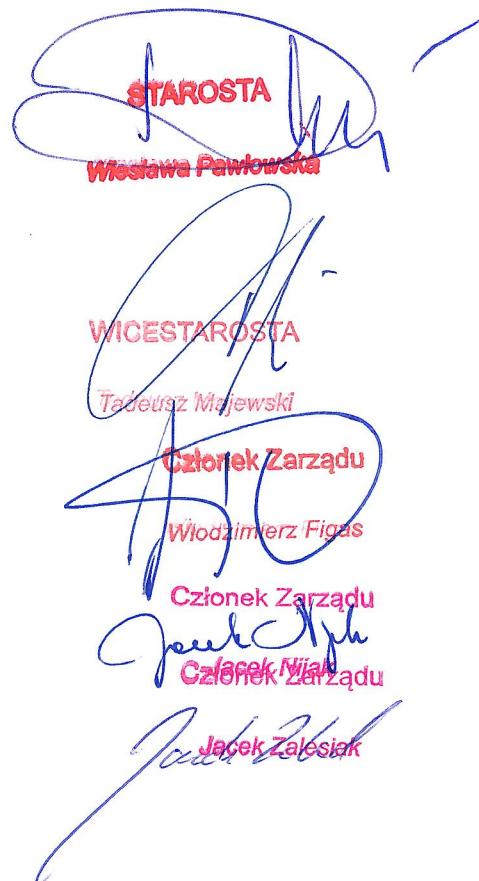 STAROSTA
Wiesława Pawłowska
WICESTAROSTA
Tadeusz Majewski
Członek Zarządu
Włodzimierz Figas
Członek Zarządu
Jacek Nijak
Członek Zarządu
Jacek Zalesiak